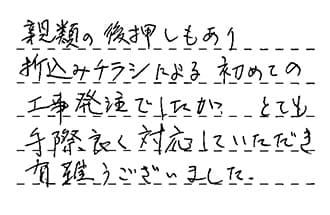 親類の後押しもあり
折込みチラシによる初めての
工事発注でしたが、とても
手際良く対応していただき
有難うございました。